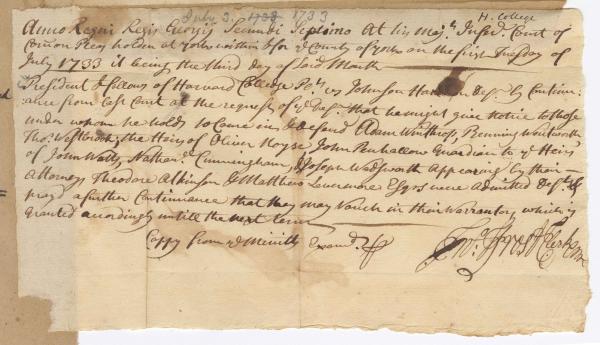 July 3. 1733 1733.
H. College
Anno Regni Regis Georgij Secundi Septimo At his Maj.ts Infr.d Court of
Com̄on Pleas holden at York within & for y.e County of York on the first Tuesday of
July 1733 it being the third Day of said Month
President & fellows of Harvard College Pl.ts vs Johnson Def.t By Continu-
ance from last Court at the request of y.e Def.t that he might give notice to those
under whom he holds to Come in & defend Adam Winthrop, Benning Wentworth
Tho.s Westbrook, the Heirs of Oliver Noyse John Penhallow Guardian to y.e Heirs
of John Watts, Nathan.l Cunningham, & Joseph Wadsworth appearing by their
Attorneys Theodore Atkinson & Matthew Livermore Esq.rs were admitted Def.ts &
pray a further Continuance that they may Vouch in their Warrantors which is
Granted accordingly untill the next term
Coppy from y.e Minuits Exam.d
Frost Clerk